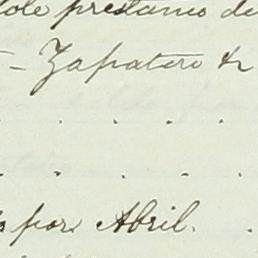 prestamo de
- Zapatero &
por Abril.